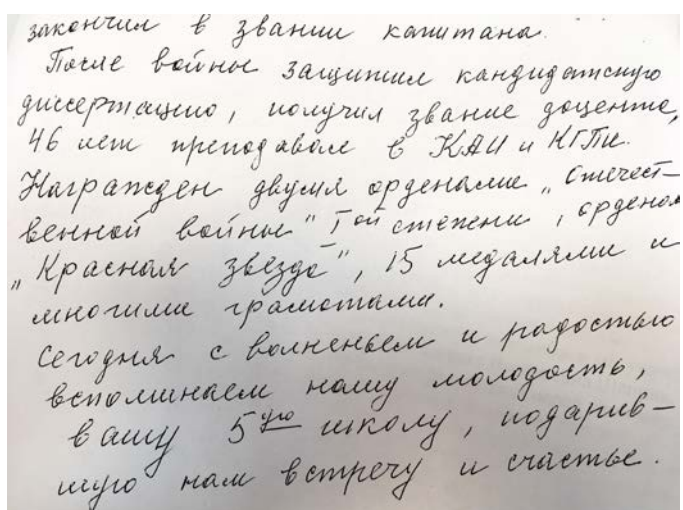 закончил в звании капитана.
После войны защитил кандидатскую
диссертацию, получил звание доцента,
46 лет преподавал в КАИ и КГПИ.
Награжден двумя орденами „Отечест-
венной войны" I ой степени, орденом
„Красная звезда", 15 медалями и
многими грамотами.
Сегодня с волненьем и радостью
вспоминаем нашу молодость,
вашу 5 ую школу, подарив-
шую нам встречу и счастье.